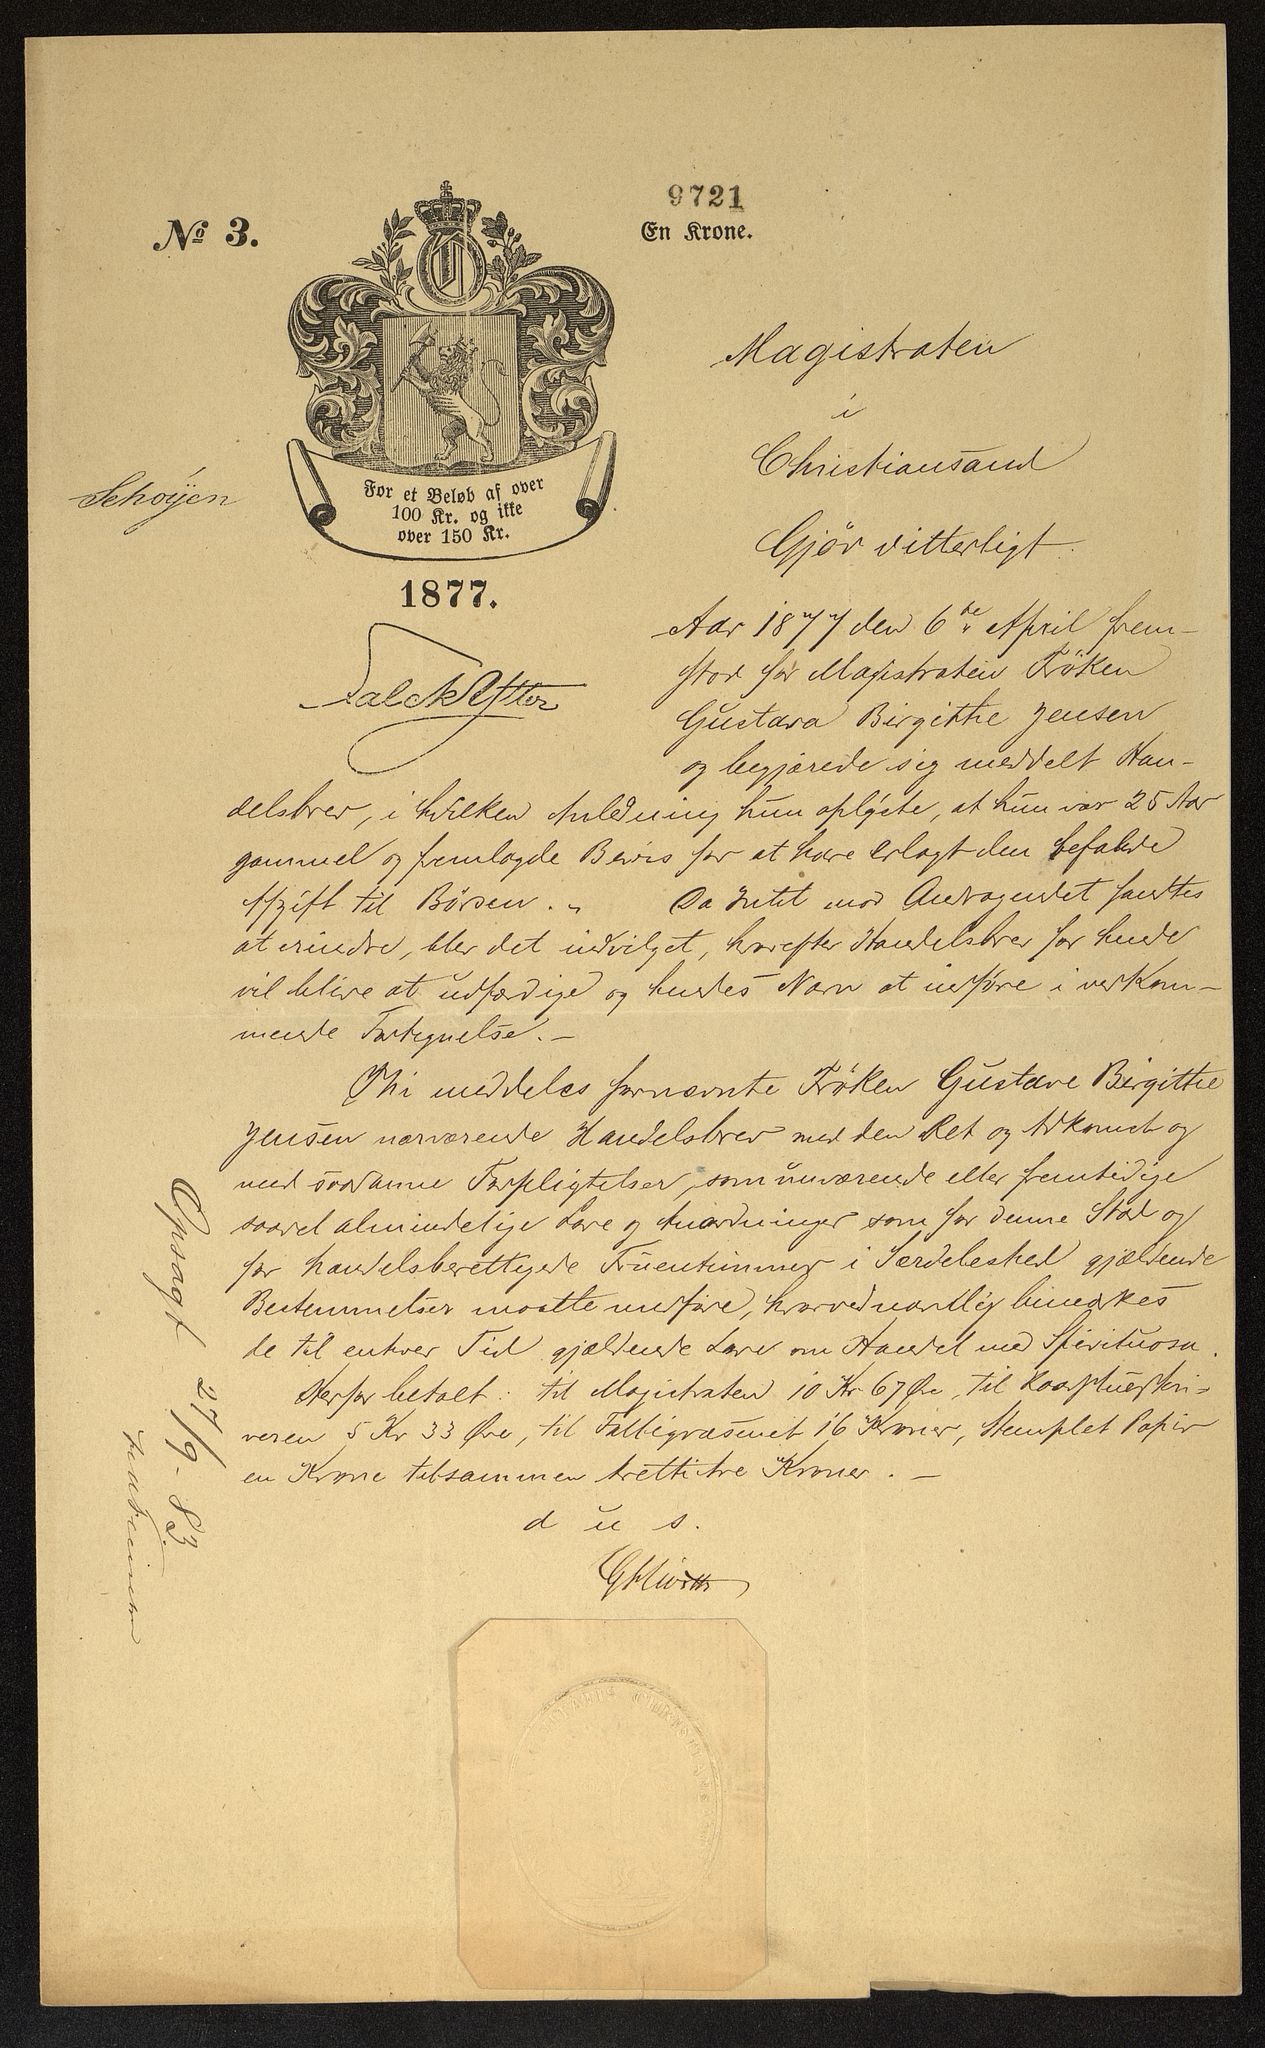 No 3.
9721
En Krone.
For et Beløb af over
100 Kr. og ikke
over 150 Kr.
1877.
Schøyen
Magistraten
i
Christiansand
Gjør vitterligt.
Aar 1877 den 6te April frem-
stod for Magistraten Frøken
Gustava Birgitte Jensen
og begjærede sig meddelt Han-
delsbrev, i hvilken Anledning hun oplyste, at hun var 25 Aar
gammel og fremlagde Bevis for at have erlagt den befalede
Afgift til Børsen. „ Da Intet mod Andragendet fandtes
at erindre, blev det indvilget, hvorefter Handelsbrev for hende
vil blive at udfærdige og hendes Navn at indføre i vedkom-
mende Fortegnelse. –
Thi meddeles fornævnte Frøken Gustava Birgitte
Jensen nærværende Handelsbrev med den Ret og Adkomst og
med saadanne Forpligtelser, som nuværende eller fremtidige
saavel almindelige Love og Anordninger som for denne Stad og
for handelsberettigede Fruentimmer i Særdeleshed gjældende
Bestemmelser maatte medføre, hvorved navnlig bemærkes
de til enhver Tid gjældende Love om Handel med Spirituosa.
Herfor betalt: til Magistraten 10 Kr 67 Øre, til Raadstueskri-
veren 5 Kr 33 Øre, til Fattigvæsenet 16 Kroner, Stemplet Papir
en Krone tilsammen trettitre Kroner. –
d u s.
Opsagt 27/9-83.